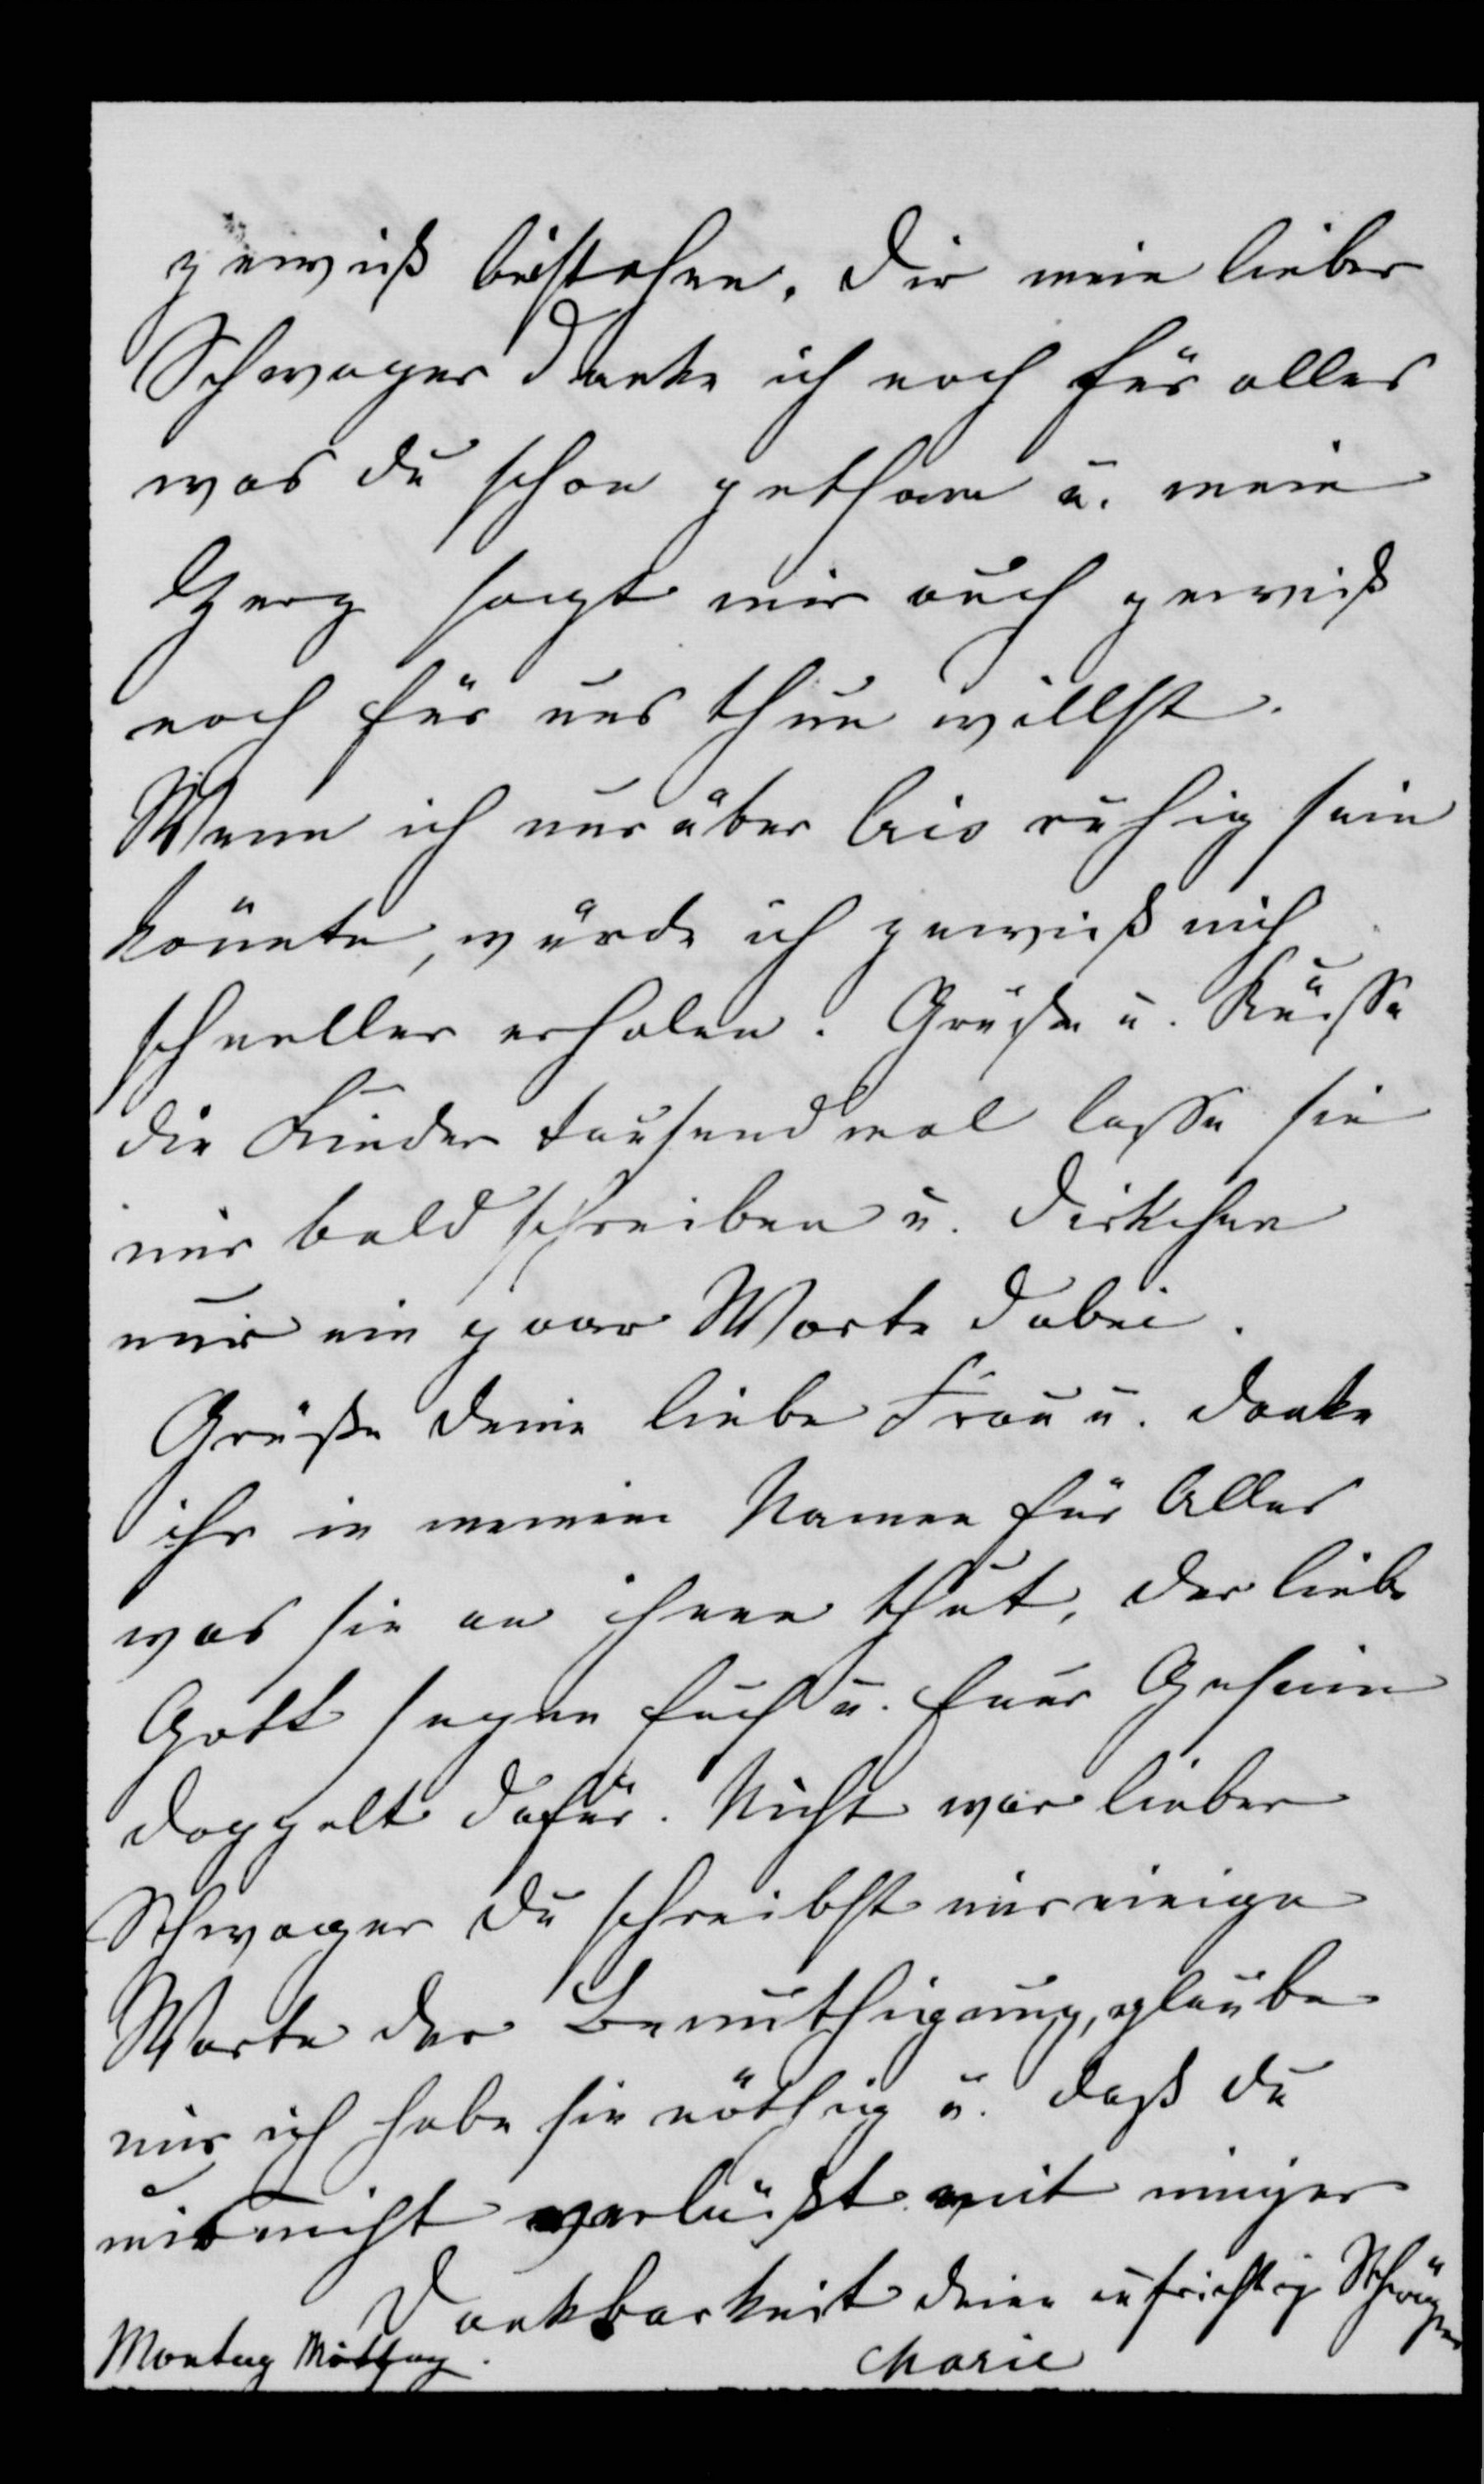 gewiß beistehen. Dir mein lieber
Schwager danke ich noch für alles
was du schon gethan u. mein
Herz sagt mir auch gewiß
noch für uns thun willst.
Wenn ich nur über ruhig sein
könnte, würde ich gewiß mich
schneller erholen. Grüße u. Küsse
die Kinder tausendmal lasse sie
mir bald schreiben u. Dirkchen
nur ein paar Worte dabei.
Grüße deine liebe Frau u. danke
ihr in meinem Namen für Alles
was sie an ihnen thut, der liebe
Gott segne Euch u. Euer Gesinn
doppelt dafür. Nicht war lieber
Schwager du schreibst mir einige
Worte der Bemuthigung, glaube
mir ich habe sie nöthig u. daß du
mich nicht verläßt mit inniger
Dankbarkeit deine aufrichtige Schwägerin
Montag Mittag. Marie